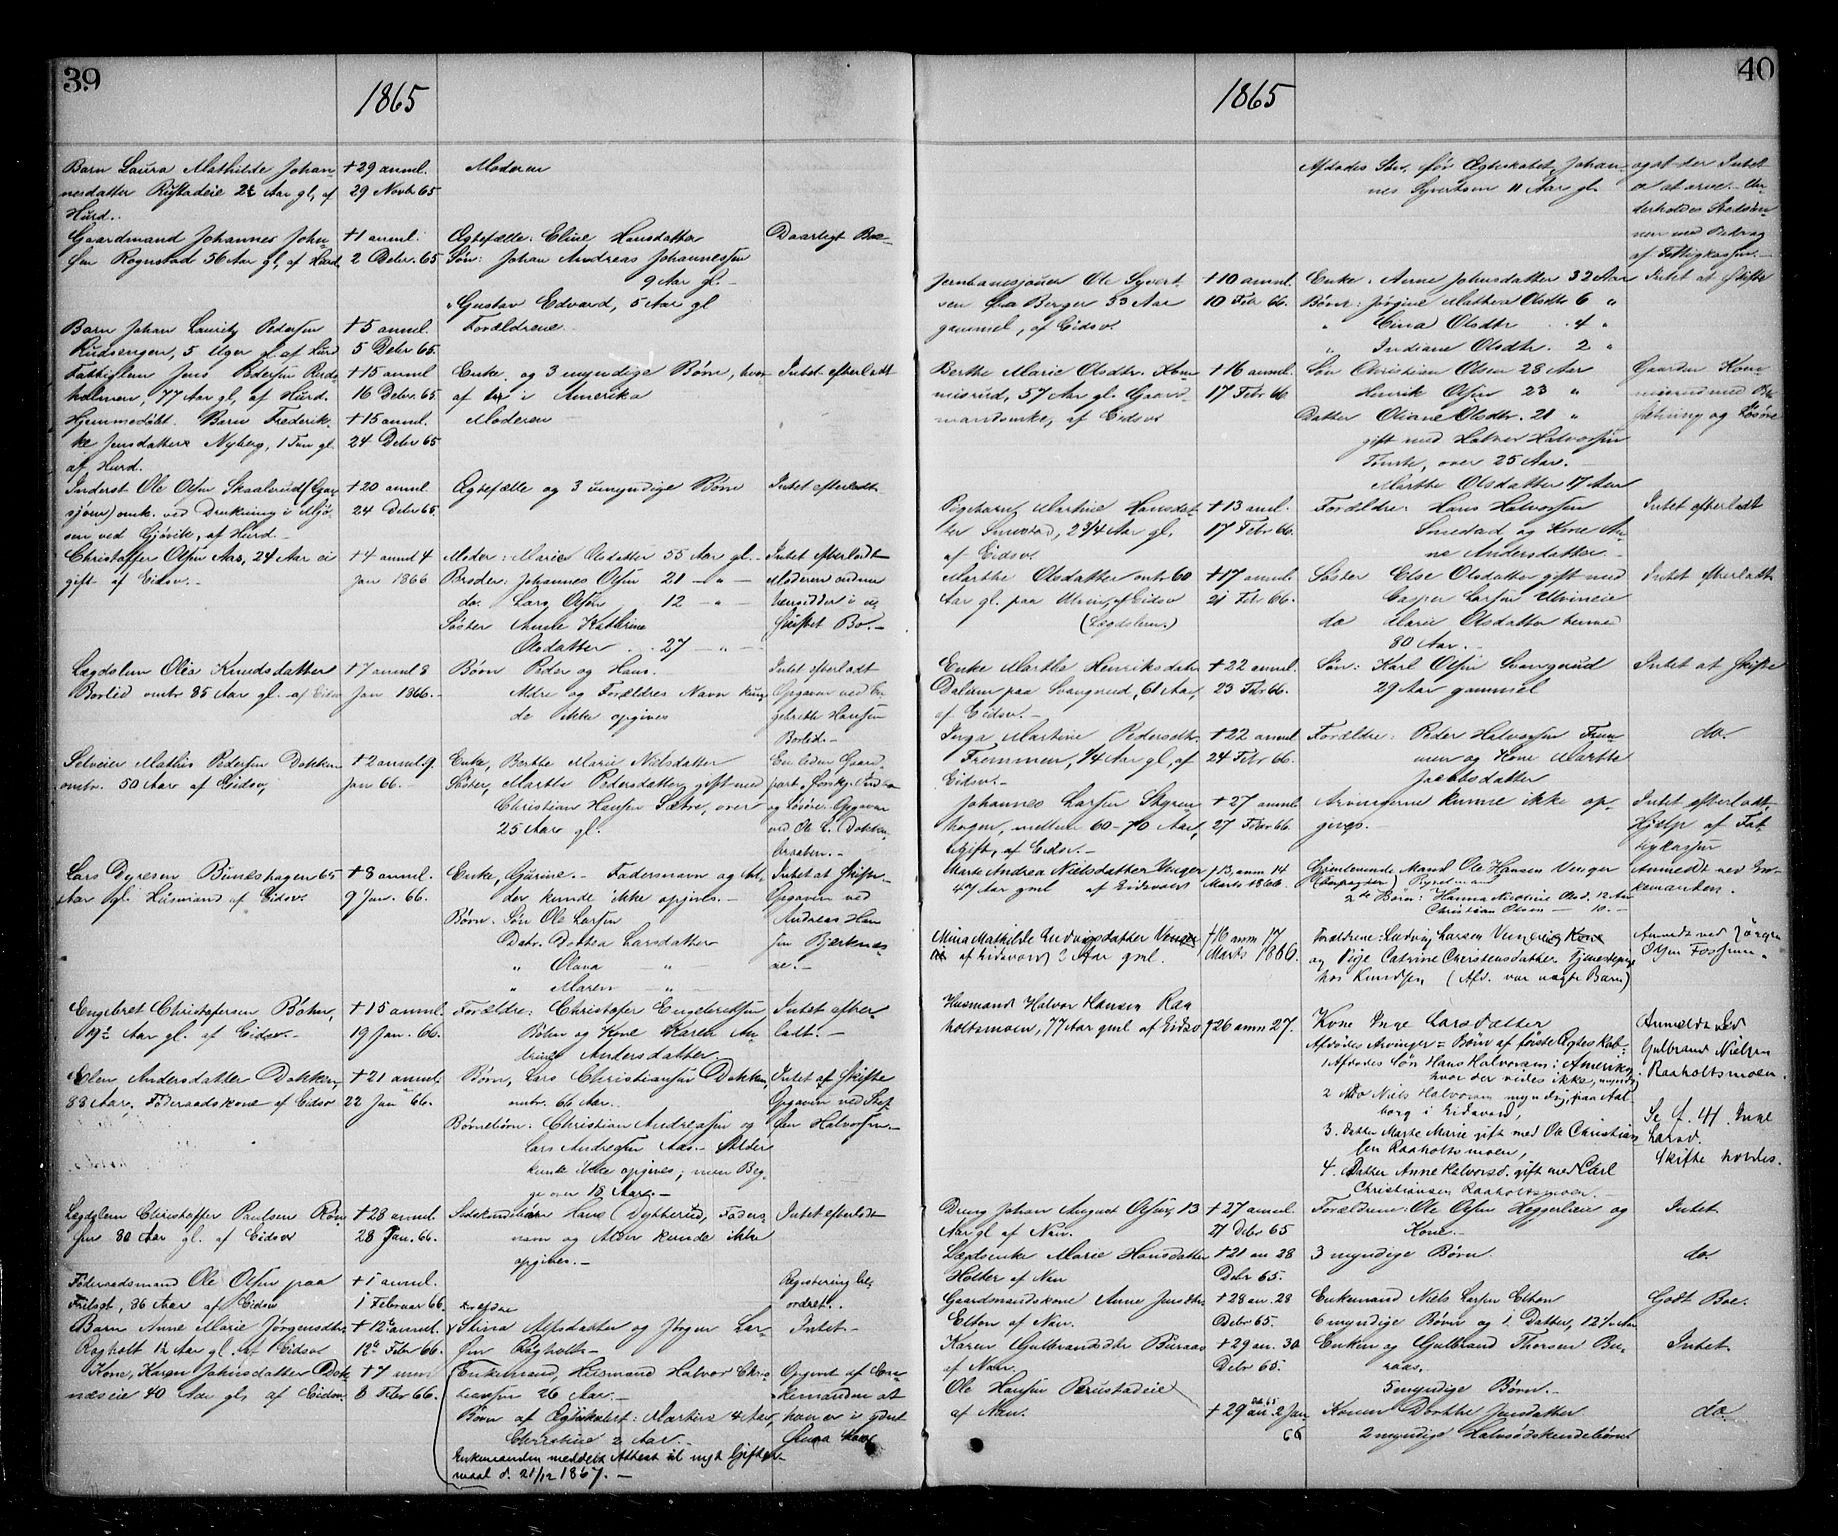 39
1865
Barn Laura Mathilde Johan-
nesdatter Rustadeie 2 Aar gl, af
Hurd.
+ 29 anml.
29 Novbr 65
Moderen
Gaardmand Johannes John-
sen Rognstad 56 Aar gl, af Hurd.
+ 1 anml.
2 Debr. 65
Ægtefælle: Eline Hansdatter
Søn: Johan Andreas Johannessen
9 Aar gl.
" Gustav Edvard, 5 Aar gl
Daarligt Bo
Barn Johan Lauritz Pedersen
Rudsengen, 5 Uger gl. af Hurd
+ 5 anml.
5 Debr 65.
Forældrene
Fattiglem Jens Pedersen
holmen, 77 Aar gl, af Hurd.
+ 15 anml
16 Debr. 65
Enke og 3 myndige Børn, hvor-
af i Amerika
Intet efterladt
Hjemmedøbt Barn Frederik-
ke Jensdatter Nyberg, gl.
af Hurd.
+ 15 anml.
24 Debr 65
Moderen
Inderst Ole Olsen Skaalerud (
) omk. ved Drukning i Mjø-
sen ved Gjøvik, af Hurd.
+ 20 anml.
24 Debr 65
Ægtefælle og 3 umyndige Børn
Intet efterladt
Christoffer Olsen Aas, 24 Aar ei
gift af Eidsv.
+ 4 anml 4
Jan 1866
Moder: Marie Olsdatter 55 Aar gl.
Broder: Johannes Olsen 21 — " —
do. Lars Olsen 12 — " —
Søster Anne Kathrine
Olsdatter 27 — " —
Intet efterladt
Moderen
i u-
skiftet Bo.
Lægdslem Olea Knudsdatter
Borlid omtr 85 Aar gl. af Eidsv
+ 7 anml 8
Jan 1866.
Børn Peder og Hans.
Aldre og Forældres Navn kun-
de ikke opgives
Intet efterladt
Opgaven ved En-
gebreth Hansen
Borlid.
Selveier Mathis Pedersen Dokken
omtr. 50 Aar af Eidsv,
+ 2 anml 9.
Jan 66.
Enke, Berthe Marie Nielsdatter
Søster, Marthe Pedersdatter gift med
Christian Hansen Sætre, over
25 Aar gl.
En liden Gaard-
part
og Løsøre. Opgaven
ved Ole L. Dokken-
braaten.
Lars Dyresen Buneshagen 65
Aar gl. Husmand af Eidsv.
+ 8 anml.
9 Jan. 66.
Enke, Gurine. Fadersnavn og Al-
der kunde ikke opgives.
Børn. Søn Ole Larsen
Datr. Dortea Larsdatter
" Olava — " —
" Maren — " —
Intet at skifte.
Opgaven ved
Andreas Han-
sen Bjerknes-
eie.
Engebret Christofersen Bøhn,
19½ Aar gl. af Eidsv.
+ 15 anml.
19 Jan. 66.
Forældre: Christofer Engebretsen
Bøhn og Kone Karen An-
drine Andersdatter.
Intet efter-
ladt.
Elen Andersdatter Dokken,
88 Aar, Føderaadskone af Eidsv
+ 21 anml.
22 Jan 66.
Børn, Lars Christiansen Dokken,
omtr. 66 Aar.
Børnebørn: Christian Andreasen og
Lars Andreasen Aas. Alder
kunde ikke opgives; men Beg-
ge over 18 Aar.
Intet at skifte
Opgaven ved Stef-
fen Halvorsen.
Lægdslem Christoffer Paulsen
80 Aar gl. af Eidsv
+ 28 anml.
28 Jan. 66.
Hans Dytterud, Faders-
navn og Alder kunde ikke
opgives.
Intet efterladt
Føderaadsmand Ole Olsen paa
Frilsgt, 86 Aar af Eidsv
+ 1 anml.
1 Februar 66.
Registrering be-
ordret.
Barn Anne Marie Jørgensdtr.
Ragholt 12 Aar gl. af Eidsv
+ 12te anml.
12te Febr 66.
Forældre
Stina Olsdatter og Jørgen Lar-
sen Ragholt
Intet
Kone, Karen Johnsdatter Dok-
næseie 40 Aar gl, af Eidsv.
+ 7 anml
8 Febr 66.
Enkemand, Husmand Halvor Chri-
stensen 26 Aar.
Børn af Ægteskabet: Martine 4 Aar,
Christine 2 Aar.
Enkemanden meddelt Attest til nyt Gifter-
maal d. 21/12 1867.
Opgivet af En-
kemanden at
han er i ydret

40
1865
Afdødes Søn, før Ægteskabet, Johan-
nes Syvertsen 11 Aar gl.
ogat der Intet
er at arve. Un-
derholdes Stedsøn-
nen med Bidrag
af Fattigkassen.
Jernbanesjouer Ole Syvert-
sen fra Berger 33 Aar
gammel, af Eidsv.
+ 10 anml.
10 Febr 66.
Enke: Anne Johnsdatter 32 Aar
Børn: Jørgine Mathea Olsdtr 6 "
" Lina Olsdtr 4 "
" Indiane Olsdtr. 2 "
Intet at skifte
Berthe Marie Olsdtr. Kom-
misrud, 57 Aar gl. Gaard-
mandsenke, af Eidsv
+ 16 anml.
17 Febr 66
Søn Christian Olsen 28 Aar
Henrik Olsen 23 "
Datter Oliane Olsdtr. 21 "
gift med Halvor Halvorsen
over 25 Aar.
Marthe Olsdatter 17 Aar
Gaarden Kom-
misrud med Be-
sætning og Løsøre
Pigebarn Martine Hansdat-
ter Smestad, 2 3/4 Aar gl.
af Eidsv
+ 13 anml.
17 Febr 66.
Forældre: Hans Halvorsen
Smestad og Kone An-
ne Andersdatter
Intet efterladt
Marthe Olsdatter omtr 60
Aar gl. paa Ulvin, af Eidsv
(Lægdslem)
+ 17 anml.
21 Febr 66.
Søster Else Olsdatter gift med
Casper Larsen Ulvineie
do Marie Olsdatter
80 Aar.
Intet efterladt
Enke Marthe Henriksdatr
Dalum paa Svangrud, 61 Aar,
af Eidsv.
+ 22 anml.
23 Febr 66.
Søn: Karl Olsen Svangrud
29 Aar gammel
Intet at skifte
Inga Martine Pedersdtr
Tremmen, 1/4 Aar gl, af
Eidsv.
+ 22 anml
24 Febr 66.
Forældre: Peder Halvorsen Trem-
men og Kone Marthe
Jacobsdatter
do.
Johannes Larsen Styren-
hagen, mellem 60-70 Aar,
ugift, af Eidsv.
+ 27 anml
27 Febr 66.
Arvingerne kunne ikke op-
gives.
Intet efterladt.
Hjælp af Fat-
tigkassen
Marte Andrea Nielsdatter Venger
47 Aar gml af Eidsvold
+ 13, anm 14
Marts 1866.
Gjenlevende Mand Ole Hansen Venger
(Forpagter)
2de Børn: Hanna Nicoline Olsd. 12 Aar
Christian Olsen — 10. —
Anmeldt ved En-
kemanden.
Mina Mathilde Ludvigsdatter Venger
af Eidsvold 2 Aar gml.
+ 16 anm 17
Marts 1866.
Forældrene: Ludvig Larsen Venger og Kone
og Pige Catrine Christensdatter Tjenestepige
hos Knudsen (Afd. var uægte Barn)
Anmeldt ved Jørgen
Olsen
Husmand Halvor Hansen Raa-
holtsmoen, 77 Aar gml af Eidsv
+ 26 anm 27.
Kone Inge Larsdatter
Afdødes Arvinger = Børn af første Ægteskab:
1 Afdødes søn Hans Halvorsen i Amerika,
hvor der vides ikke, myndig
2 do Niels Halvorsen myndig, paa Aal-
borg i Eidsvold,
3. Datter Marte Marie gift med Ole Christian-
sen Raaholtsmoen,
4. Datter Anne Halvorsd. gift med Carl
Christiansen Raaholtsmoen.
Anmeldt ved
Gulbrand Nielsen
Raaholtsmoen.
Se S. 41 Inge
Larsd.
Skifte holdes.
Dreng Johan August Olsen, 13
Aar gl af Nan.
+ 27 anml
27 Debr 65
Forældrene: Ole Olsen Heggerlieie og
Kone.
Intet
Lægdsenke Marie Hansdatter
Holter af Nan
+ 21 an 28
Debr 65.
3 myndige Børn.
do.
Gaardmandskone Anne Jensdtr
Elton af Nan.
+ 28 an. 28
Debr 65.
Enkemand Niels Larsen Elton
6 myndige Børn og 1 Datter, 12½ Aar
Godt Boe.
Karen Gulbrandsdtr Buraas
af Nan.
+ 29 an. 30
Debr 65.
Enken og Gulbrand Thorsen Bu-
raas.
5 myndige Børn.
Intet
Ole Hansen Perustadeie
af Nan.
+ 29 Debr 65 an. 2 Jan
66
Konen Dorthe Jensdatter
2 myndige Halvsødskendebørn
do.